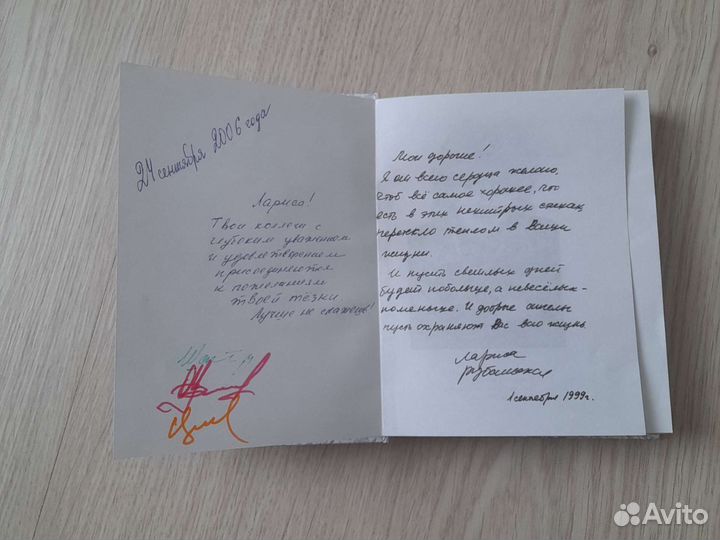 24 сентября 2006 года
Лариса!
Твои коллеги с
глубоким уважением
и удовлетворением
присоединяются
к пожеланиям
твоей тёзки
Лучше не скажешь!
Мои дорогие!
Я от всего сердца желаю,
чтоб всё самое хорошее, что
есть в этих нехитрых стихах,
перетекло теплом в Ваши
жизни.
И пусть светлых дней
будет побольше, а невесёлых -
поменьше. И добрые ангелы
пусть охраняют Вас всю жизнь.
Лариса
Рубальская
1 сентября 1999 г.
Avito